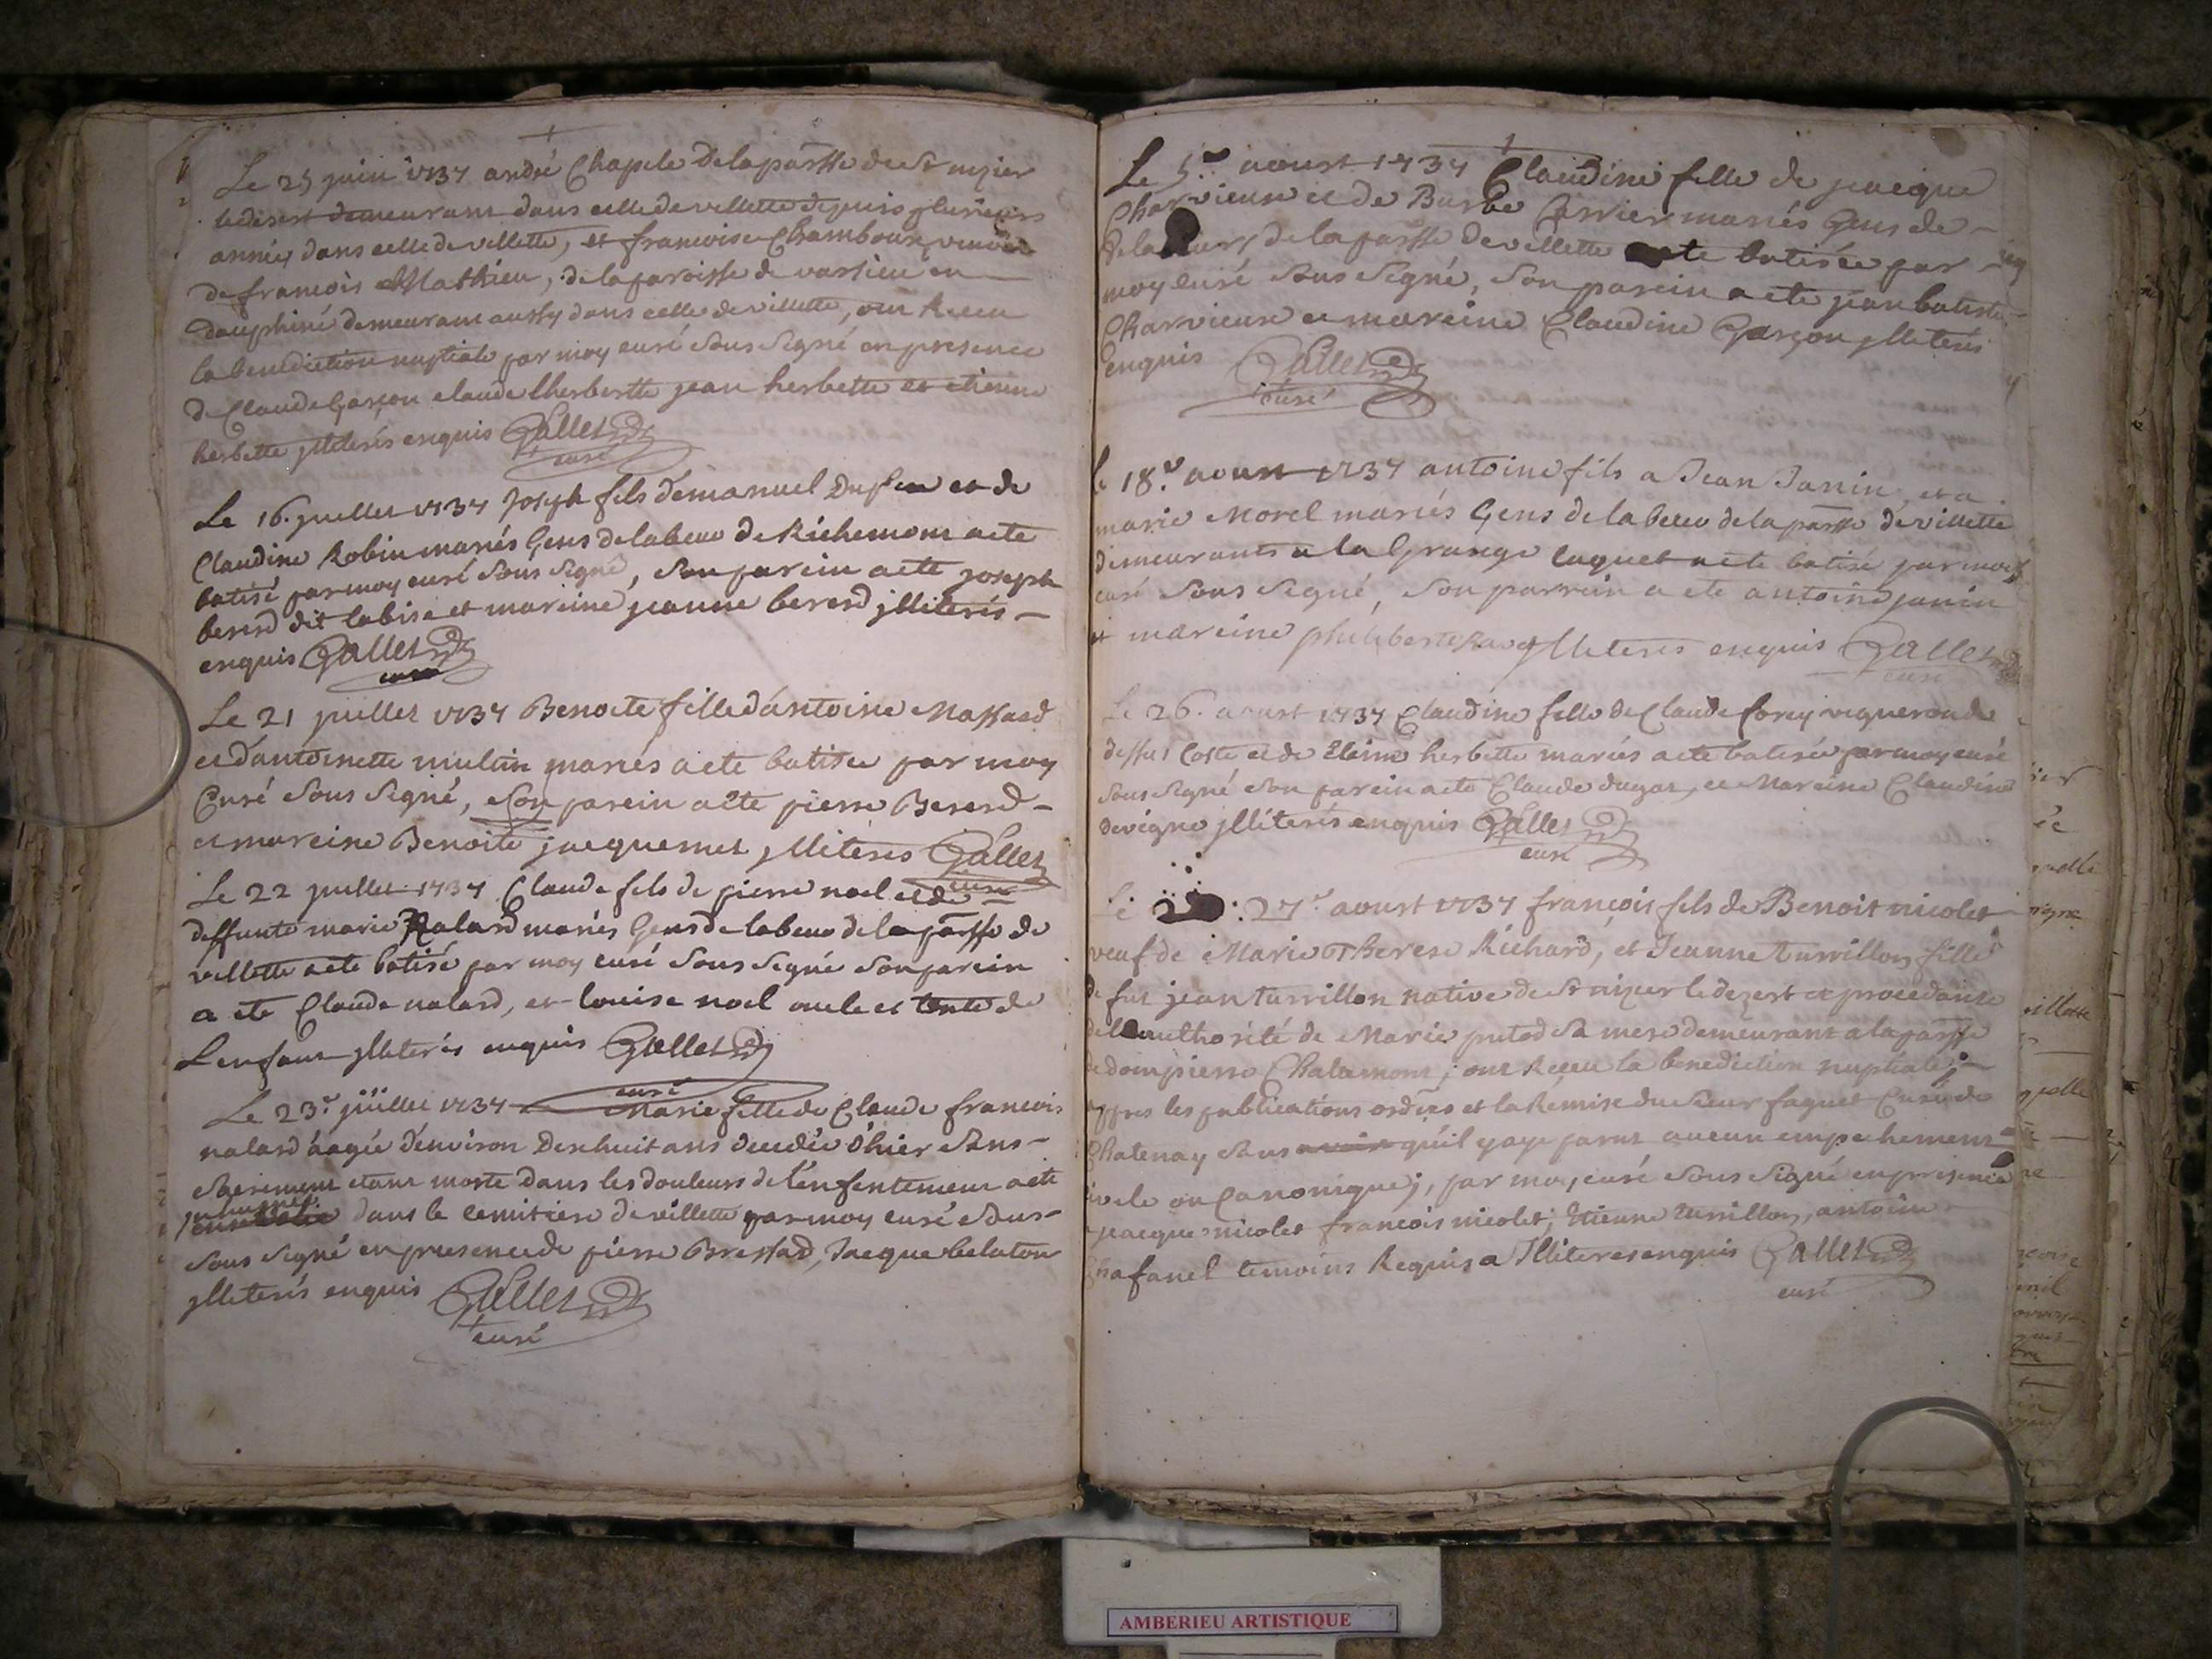 Le 25 juin 1737 andré Chapele Delaparsse de St nizier
ledesert demeurant dans celle de villette depuis plusieurs
années dans celle de villette, et francoise Chamboux veuve
de francois Mathieu, de la paroisse de vassieu en
dauphiné demeurant aussy dans celle de villette, ont Receu
la benediction nuptiale par moy curé sous signé en presence
de Claude Garçon claude lherbette jean herbette et etienne
herbette jlliterés enquis Gallet
curé
Le 16. juillet 1737 Joseph fils d'emanuel Dufour et de
Claudine Robin mariés Gens de labeur de Richemont a eté
batisé par moy curé sous signé, son parein a eté joseph
bererd dit labise et mareine jeanne bererd jlliterés
enquis Gallet
curé
Le 21 juillet 1737 Benoite fille d'antoine Massard
et d'antoinette mulin mariés a eté batisée par moy
Curé sous signé, son parein a eté pierre Bererd
et mareine Benoite jacquemet jlliterés Gallet
curé
Le 22 juillet 1737 Claude fils de pierre noel et de
deffunte marie Nalard mariés Gens de labeur de la parsse de
villette a eté batisé par moy curé sous signé son parein
a eté Claude nalard, et louise noel oncle et tente de
L'enfant jlliterés enquis Gallet
curé
Le 23e juillet 1737 Marie fille de Claude francois
nalard aagée d'environ Dexhuit ans decedée d'hier sans
sacrement etant morte dans les douleurs de l'enfentement a eté
inhumée dans le cemitiere de villette par moy curé sous
sous signé en presence de pierre Bressard, Jacque belaton
jlliterés enquis Gallet
curé
Le 5e aoust 1737 Claudine fille de jacque
Charvieux et de Barbe Carrier mariés Gens de
de la parsse de villette a eté batisée par
moy curé sous signé, son parein a eté jean batiste
Charvieux et mareine Claudine Garçon jlliterés
enquis Gallet
curé
Le 18e aoust 1737 antoine fils a Jean Janin et a
marie Morel mariés Gens de labeur de la parsse de villette
demeurants a la Grange laquet a eté batisé par moy
curé sous signé, son parrein a eté antoine janin
et mareine philiberte jlliterés enquis Gallet
curé
Le 26. aoust 1737 Claudine fille de Claude vigneron de
dessus Coste et de herbette mariés a eté batisée par moy curé
sous signé son parein a eté Claude dugas, et Mareine Claudine
devigne jlliterés enquis Gallet
curé
Le 27e aoust 1737 françois fils de Benoit nicolet
veuf de Marie Therese Richard, et Jeanne turrillon fille
de fut jean turrillon native de St nizier le dezert et procedante
de l'authorité de Marie putod sa mere demeurant a la parsse
de dompierre Chalamont; ont Receu la benediction nuptiale;
appres les publications ordres et la Remise du sieur faquet Curé de
Chatenay sans qu'il y aye parut aucun empechement
civile ou Canonique; par moy curé sous signé en presence
jacque nicolet francois nicolet, Etienne turrillon, antoine
temoins Requis a Jlliteres enquis Gallet
curé
AMBERIEU ARTISTIQUE